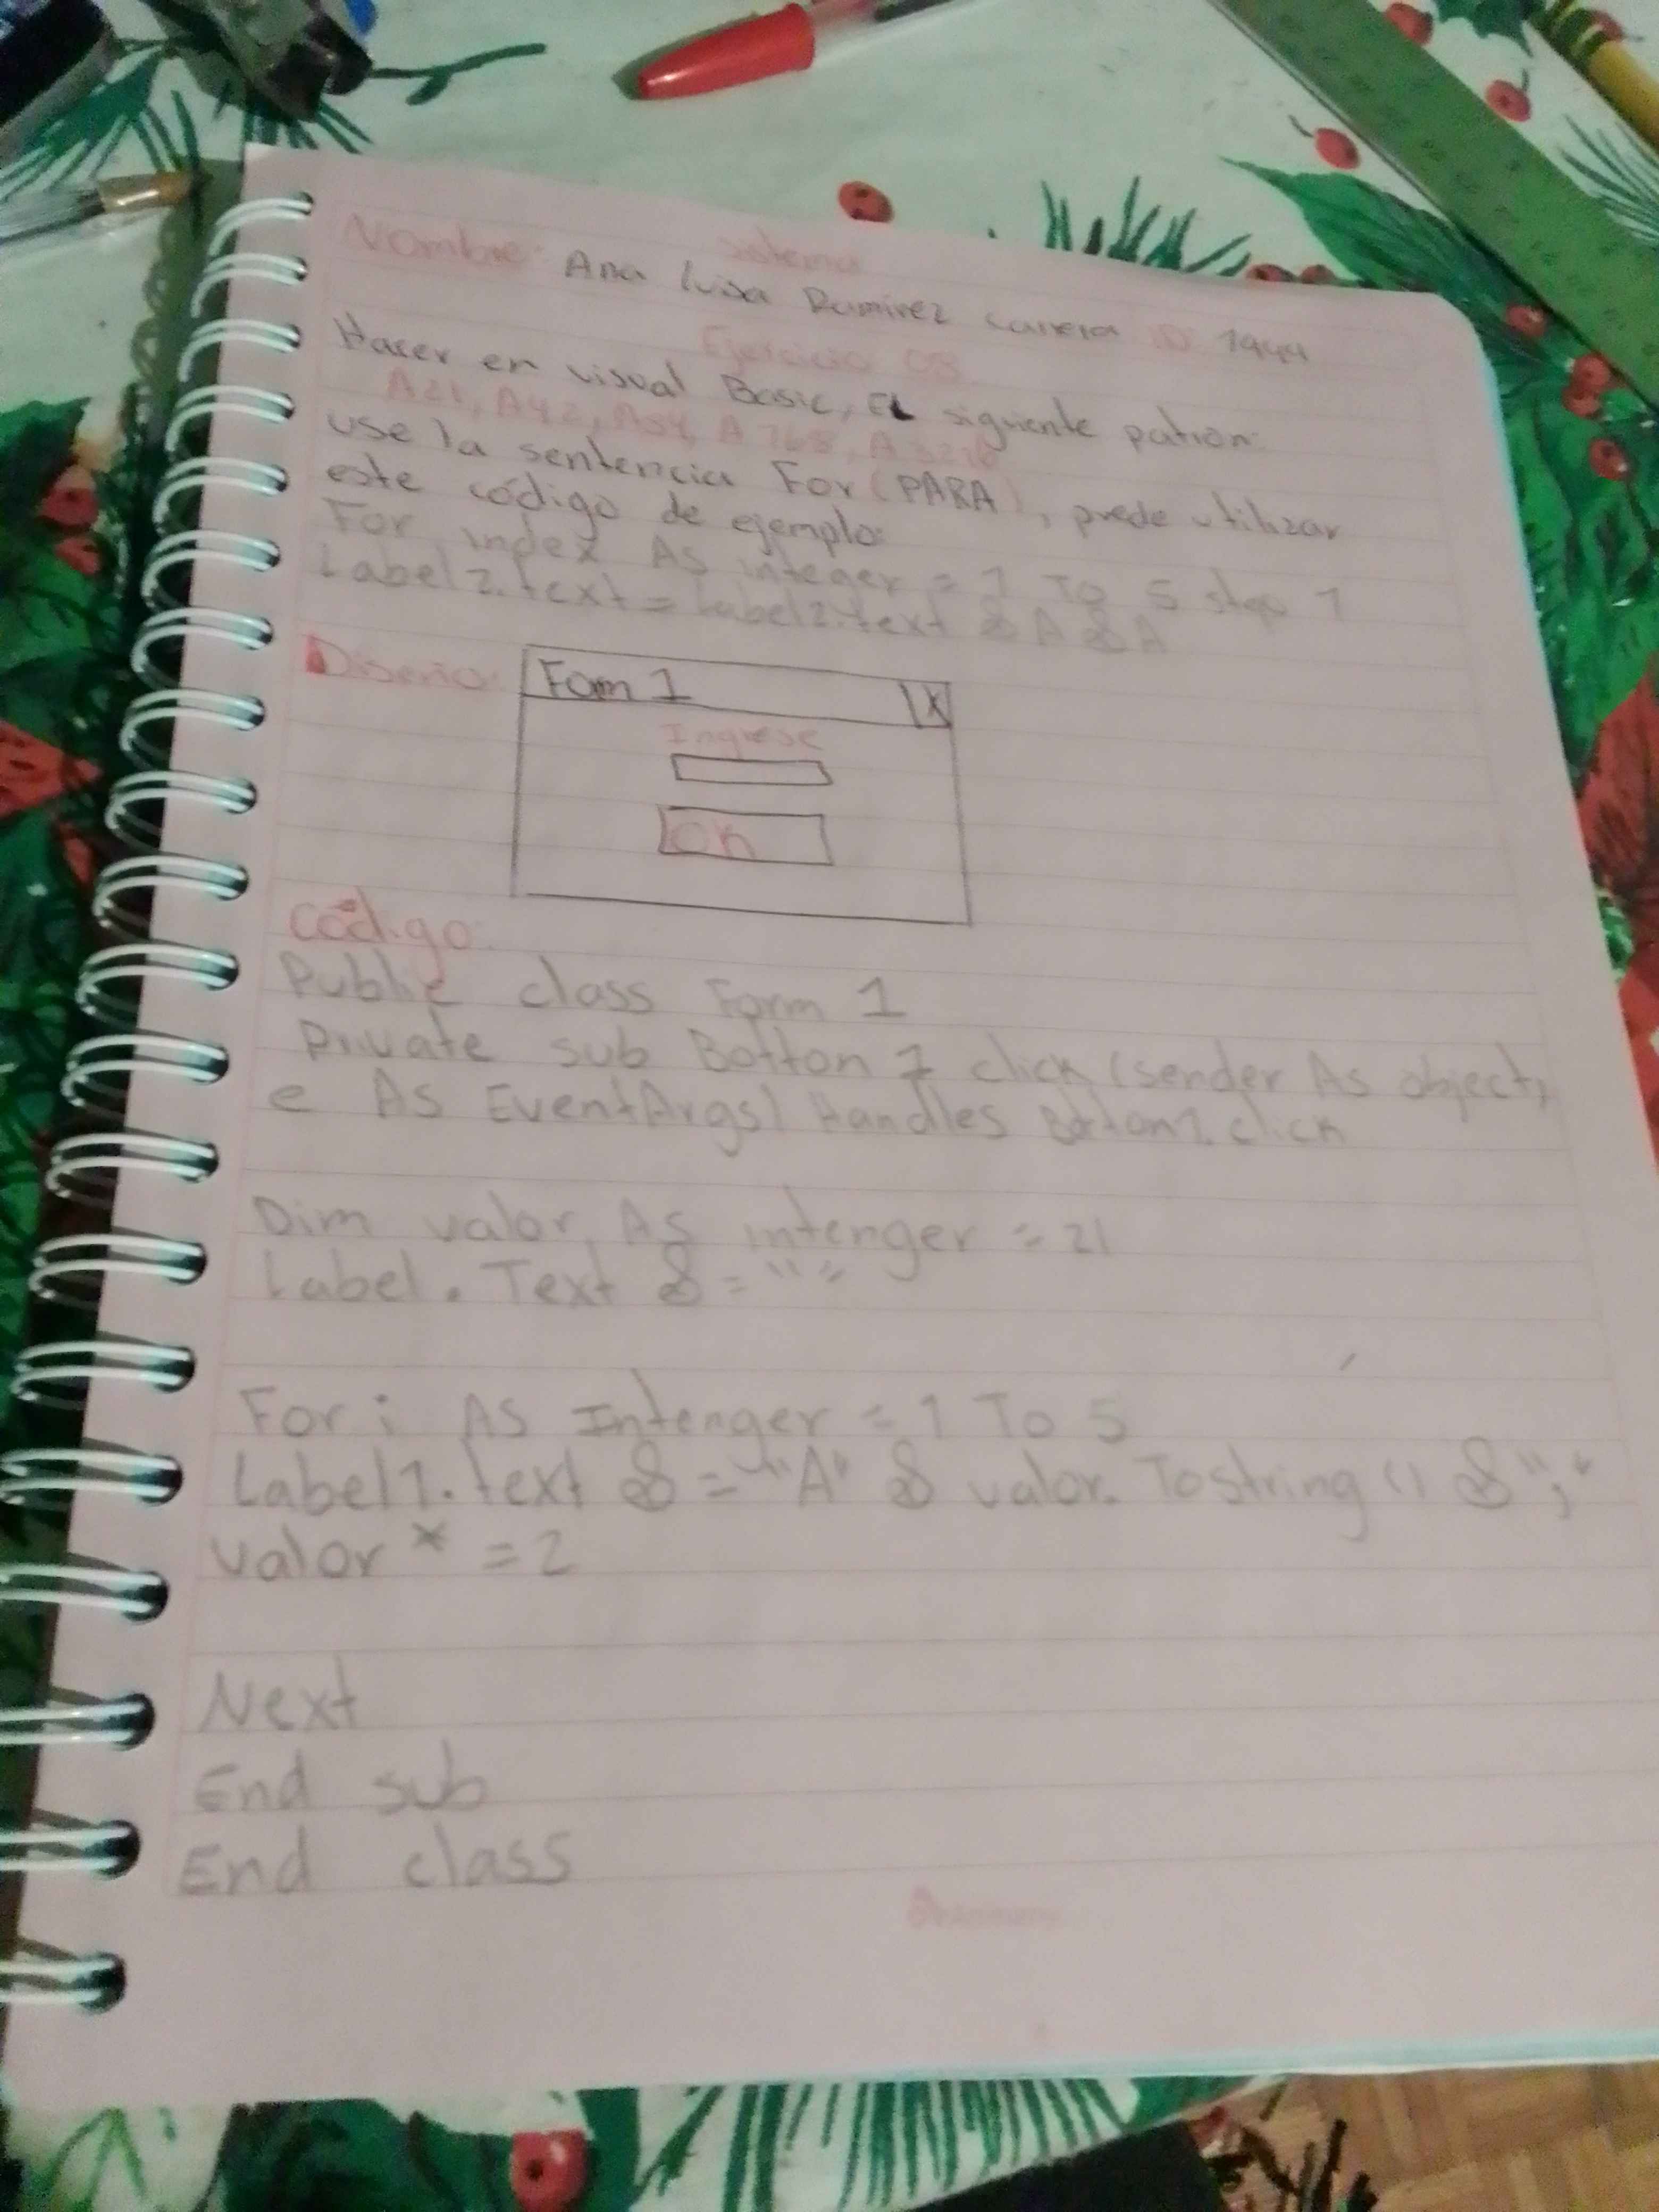 sistema
Nombre: Ana Luisa Ramirez Carrera ID 1944
Ejercicio 05
Hacer en visual Basic, EL siguiente patron:
A21, A42, A84, A168, A
use la sentencia For (PARA), puede utilizar
este código de ejemplo:
For index As integer = 1 To 5 step 1
Label2.text = Label2.text & A & A
Diseño:
Fom 1 X
Ingrese
On
Código:
Public class Form 1
Private sub Botton 1 click (sender As object,
e As EventArgs) Handles Botton1.click
Dim valor As intenger = 21
Label. Text & = ""
For i As Intenger = 1 To 5
Label1.text & = "A" & valor. Tostring () & ","
valor * = 2
Next
End sub
End class